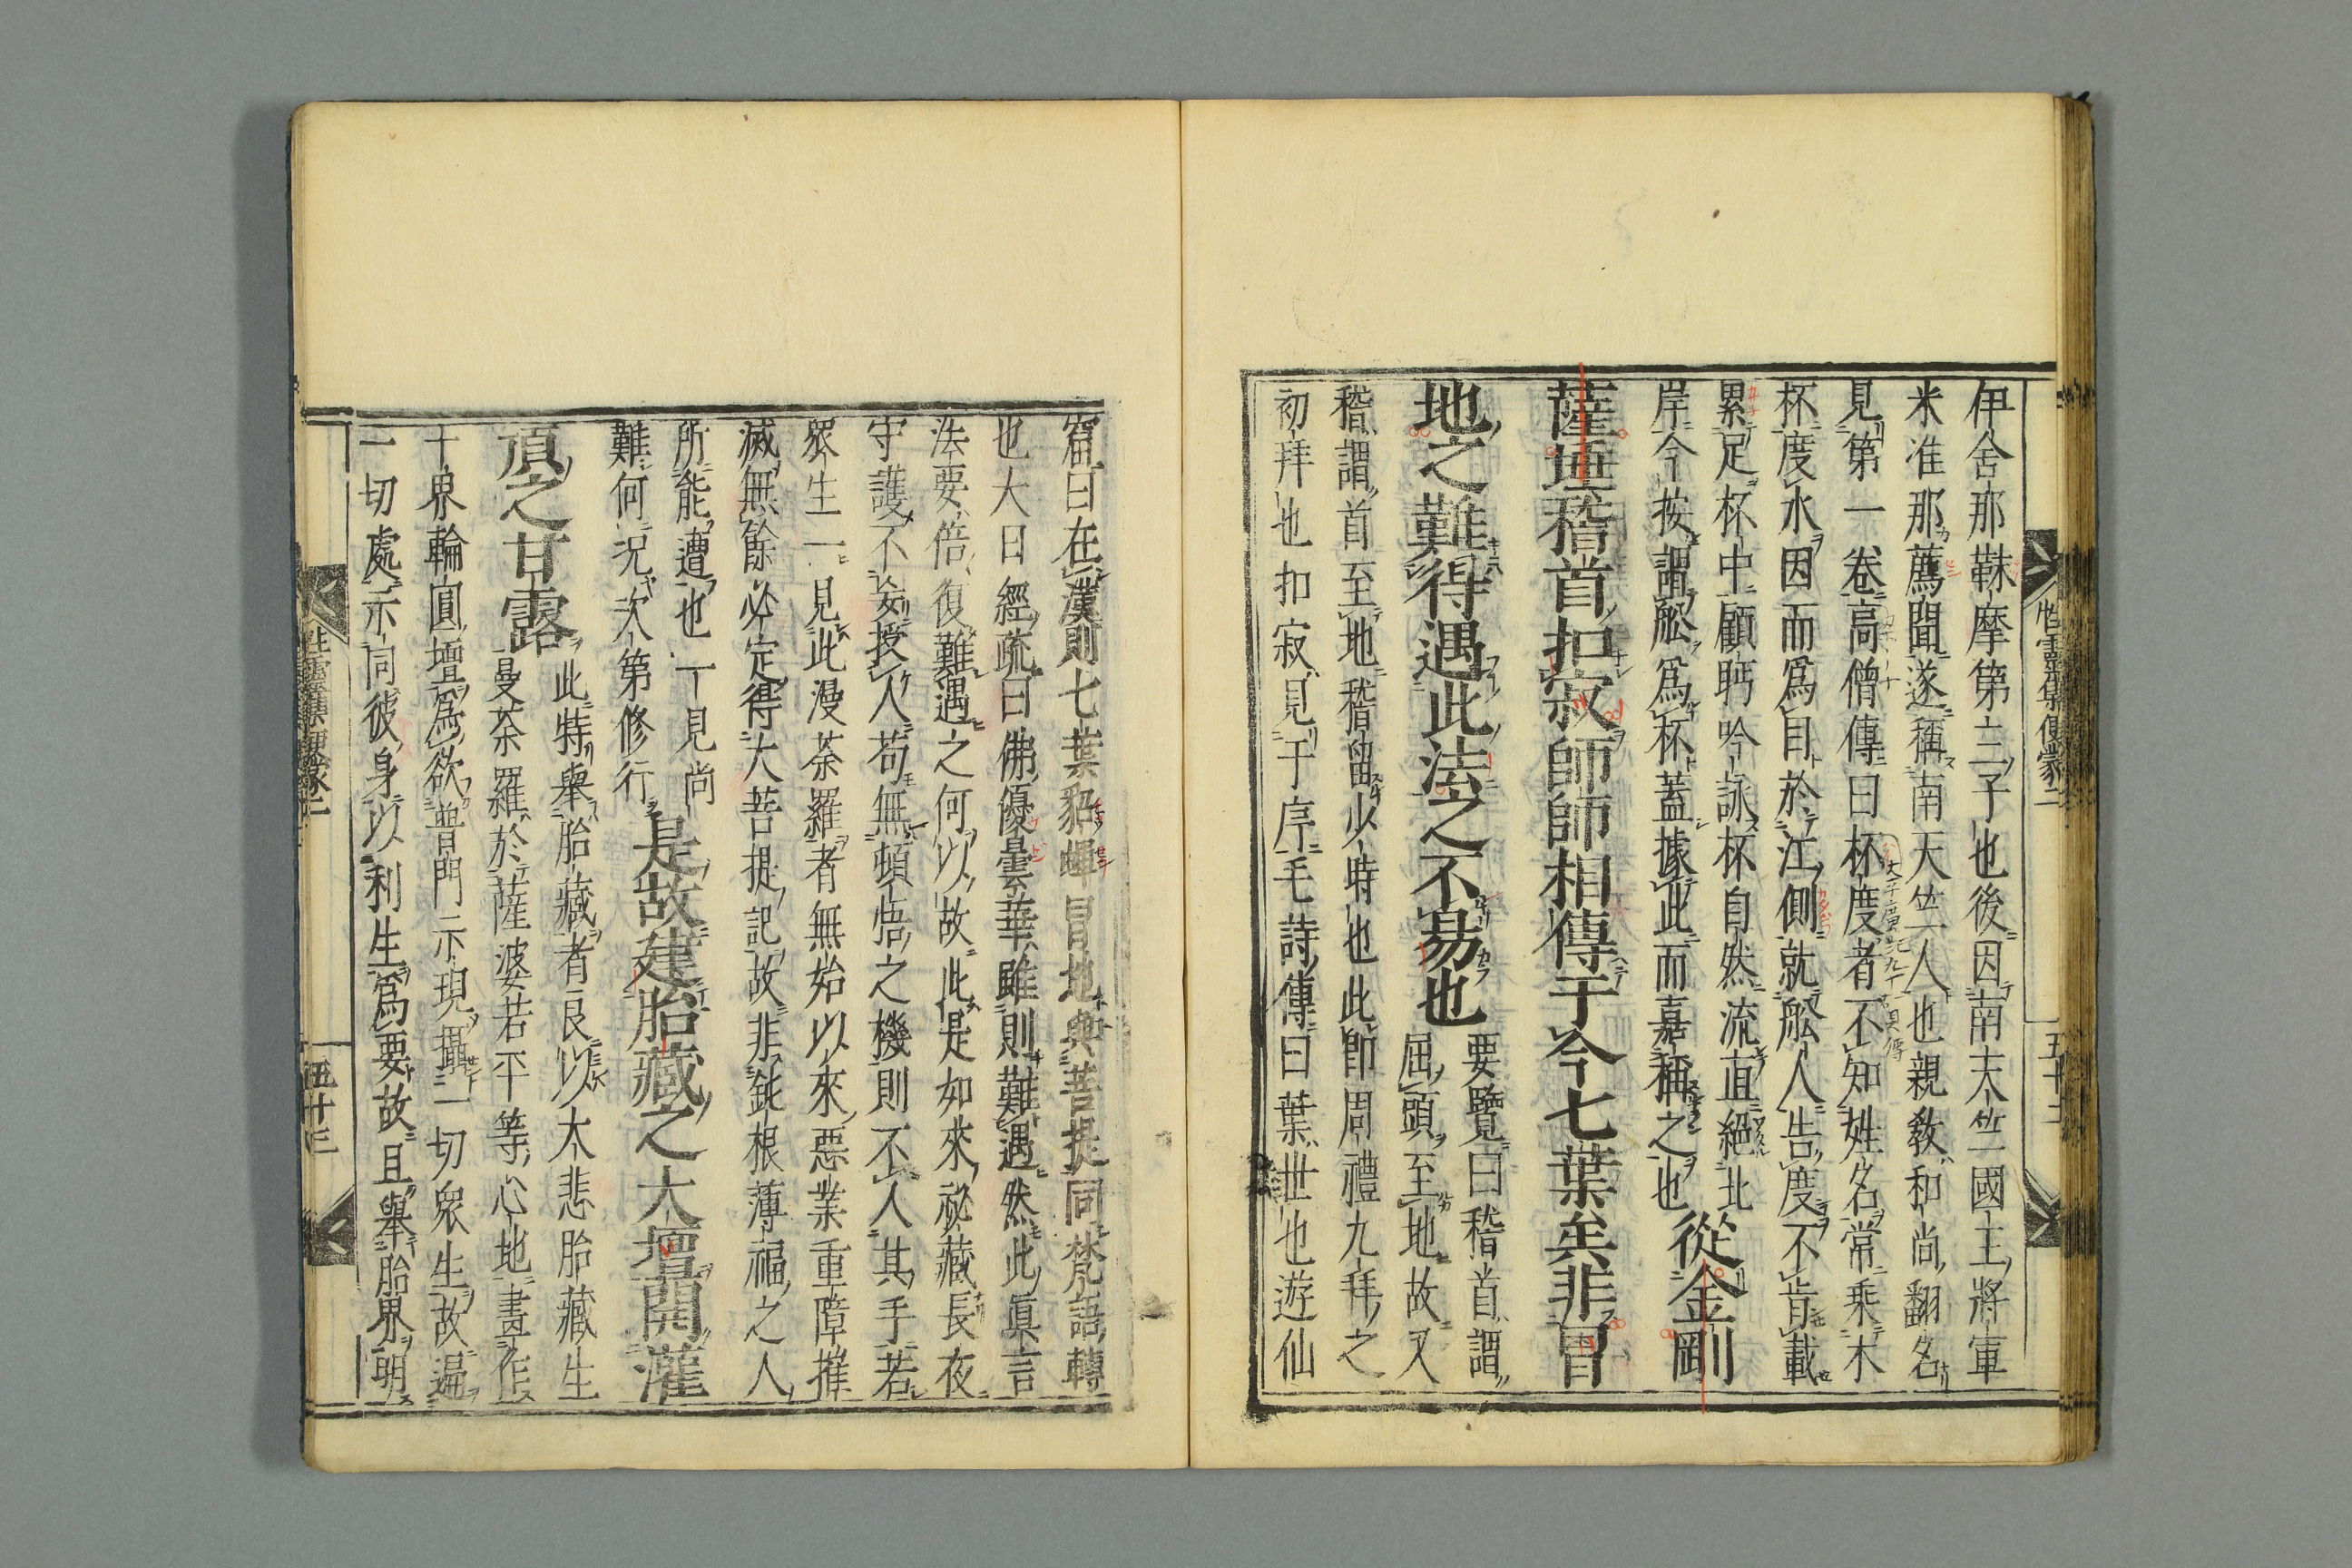 伊舍那靺摩第三子也後因南天竺國王將軍
米准那薦聞遂稱南天竺人也親教和尚翻名
見第一卷高僧傳曰杯度者不知姓名常乘木
杯度水因而爲目於江側就舩人告度不肯載
累足杯中顧眄吟詠杯自然流直絕北
岸今按謂舩爲杯蓋據此而嘉稱之也從金剛
薩埵稽首扣寂師師相傳于今七葉矣非冒
地之難得遇此法之不易也
要覽曰稽首謂
屈頭至地故又
稽謂首至地稽留少時也此即周禮九拜之
初拜也扣寂見于序毛詩傳曰葉世也遊仙
窟曰在漢則七葉貂蟬冒地與菩提同梵語轉
也大日經疏曰佛優曇華雖則難遇然此眞言
法要倍復難遇之何以故此是如來祕藏長夜
守護不妄授人苟無頓悟之機則不入其手若
衆生一見此漫荼羅者無始以來惡業重障摧
滅無餘必定得大菩提記故非鈍根薄福之人
所能遭也一見尚
難何況次第修行
是故建胎藏之大壇開灌
頂之甘露
此特舉胎藏者良以大悲胎藏生
曼荼羅於薩婆若平等心地畫作
十界輪圓壇爲欲普門示現攝一切衆生故遍
一切處示同彼身以利生爲要故且舉胎界明
性靈集便蒙二
五十二
性靈集便蒙二
五十三